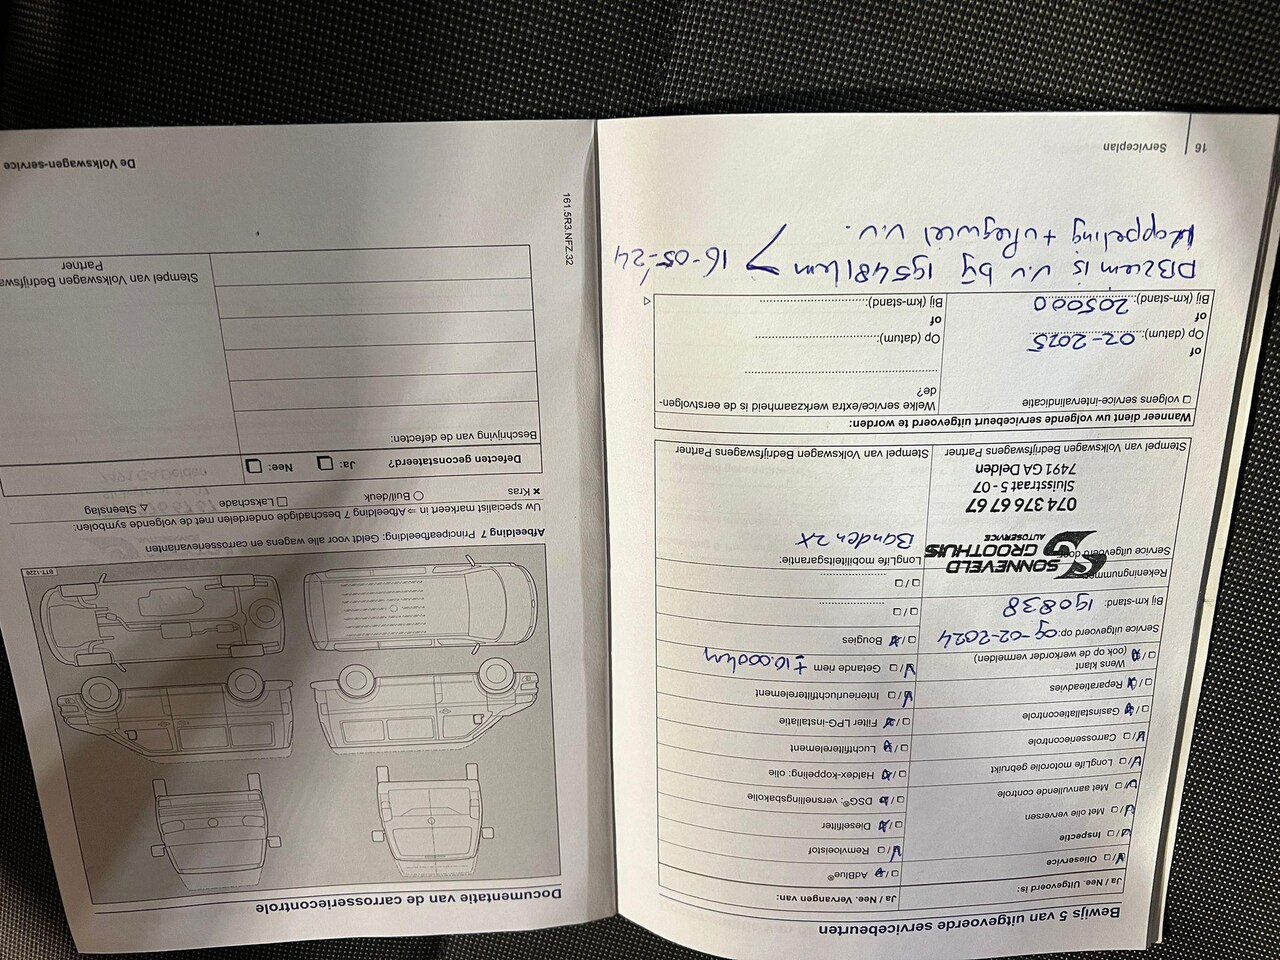 Bewijs 5 van uitgevoerde servicebeurten
Ja / Nee. Uitgevoerd is:
Olieservice
Inspectie
Met olie verversen
Met aanvullende controle
LongLife motorolie gebruikt
Carrosseriecontrole
Gasinstallatiecontrole
Reparatieadvies
Wens klant
(ook op de werkorder vermelden)
Service uitgevoerd op: 09-02-2024
Bij km-stand: 190838
Rekeningnummer
Service uitgevoerd door
SONNEVELD
GROOTHUIS
AUTOSERVICE
074 376 67 67
Sluisstraat 5 - 07
7491 GA Delden
Stempel van Volkswagen Bedrijfswagens Partner
Ja / Nee. Vervangen van:
AdBlue®
Remvloeistof
Dieselfilter
DSG®: versnellingsbakolie
Haldex-koppeling: olie
Luchtfilterelement
Filter LPG-installatie
Interieurluchtfilterelement
Getande riem ±10.000km
Bougies
LongLife mobiliteitsgarantie:
Banden 2X
Stempel van Volkswagen Bedrijfswagens Partner
Wanneer dient uw volgende servicebeurt uitgevoerd te worden:
volgens service-intervalindicatie
of
Op (datum): 02-2025
of
Bij (km-stand): 205000
Welke service/extra werkzaamheid is de eerstvolgen-
de?
Op (datum):
of
Bij (km-stand):
DBZiem is v.v bij 195481km 16-05-'24
koppeling + vliegwiel v.v.
16 Serviceplan
Documentatie van de carrosseriecontrole
BTT-1226
Afbeelding 7 Principeafbeelding: Geldt voor alle wagens en carrosserievarianten
Uw specialist markeert in ⇒ Afbeelding 7 beschadigde onderdelen met de volgende symbolen:
× Kras ○ Buil/deuk □ Lakschade △ Steenslag
Defecten geconstateerd? Ja: Nee:
Beschrijving van de defecten:
Stempel van Volkswagen Bedrijfswa
Partner
161.5R3.NFZ.32
De Volkswagen-service